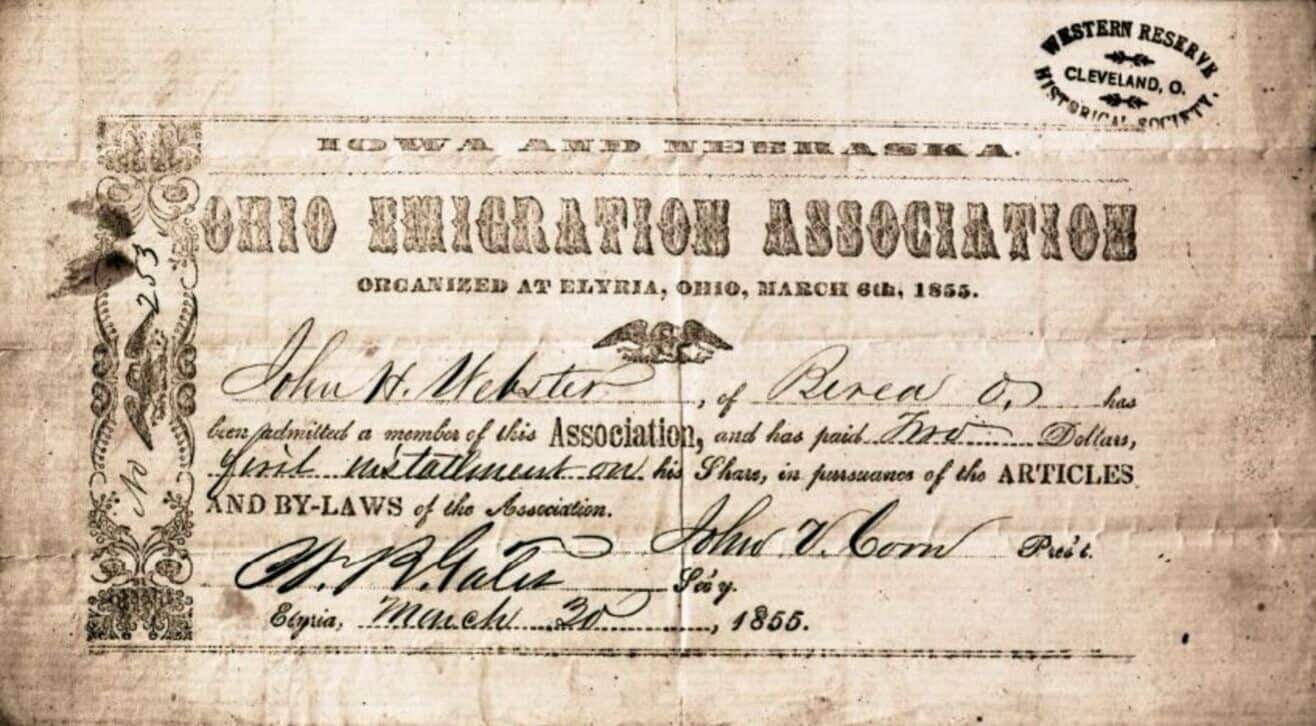 WESTERN RESERVE
CLEVELAND, O.
HISTORICAL SOCIETY.
IOWA AND NEBRASKA.
OHIO EMIGRATION ASSOCIATION
ORGANIZED AT ELYRIA, OHIO, MARCH 6th, 1855.
No 253
John H. Webster, of Berea O. has
been admitted a member of this Association, and has paid Two Dollars,
first installment on his Share, in pursuance of the ARTICLES
AND BY-LAWS of the Association.
John V. Coon Pres't.
W. R. Gates Sec'y.
Elyria, March 30, 1855.